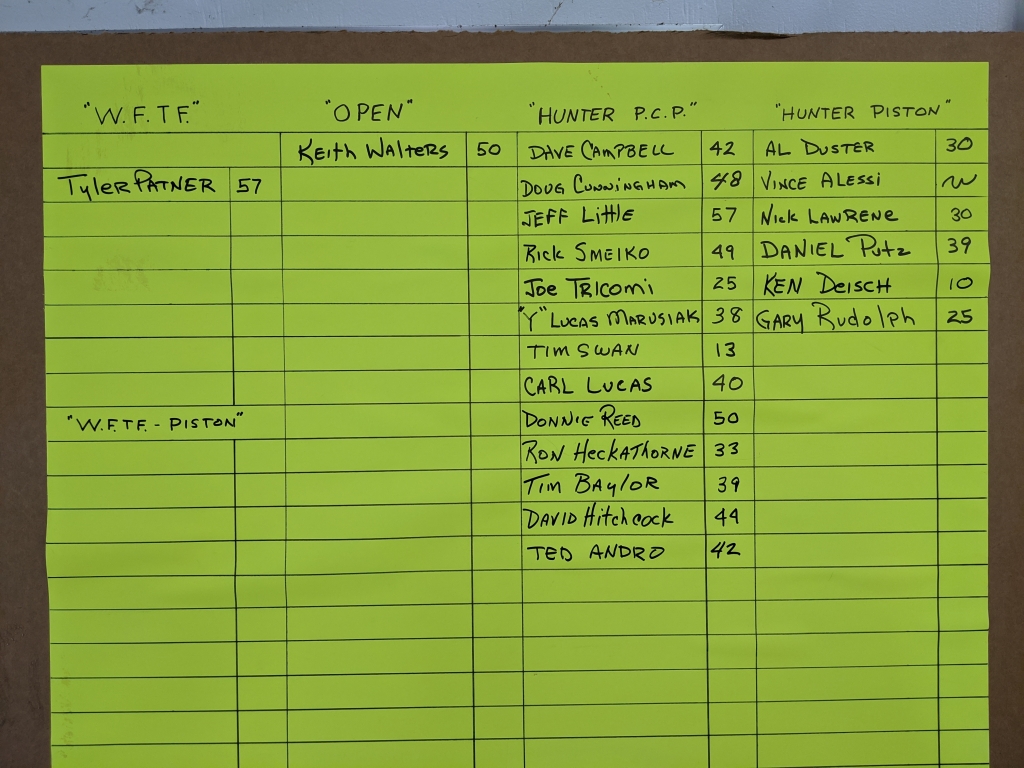 "W.F.T.F."
"OPEN"
"HUNTER P.C.P."
"HUNTER PISTON"
Keith Walters 50 DAVE CAMPBELL 42 AL DUSTER 30
Tyler PATNER 57 DOUG CUNNINGHAM 48 VINCE ALESSI
JEFF Little 57 Nick LAWRENE 30
Rick SMEIKO 49 DANIEL Putz 39
Joe TRICOMI 25 KEN DEISCH 10
"Y" LUCAS MARUSIAK 38 GARY Rudolph 25
TIM SWAN 13
CARL LUCAS 40
"W.F.T.F. - PISTON" DONNIE REED 50
RON HECKATHORNE 33
TIM BAylOR 39
DAVID Hitchcock 44
TED ANDRO 42